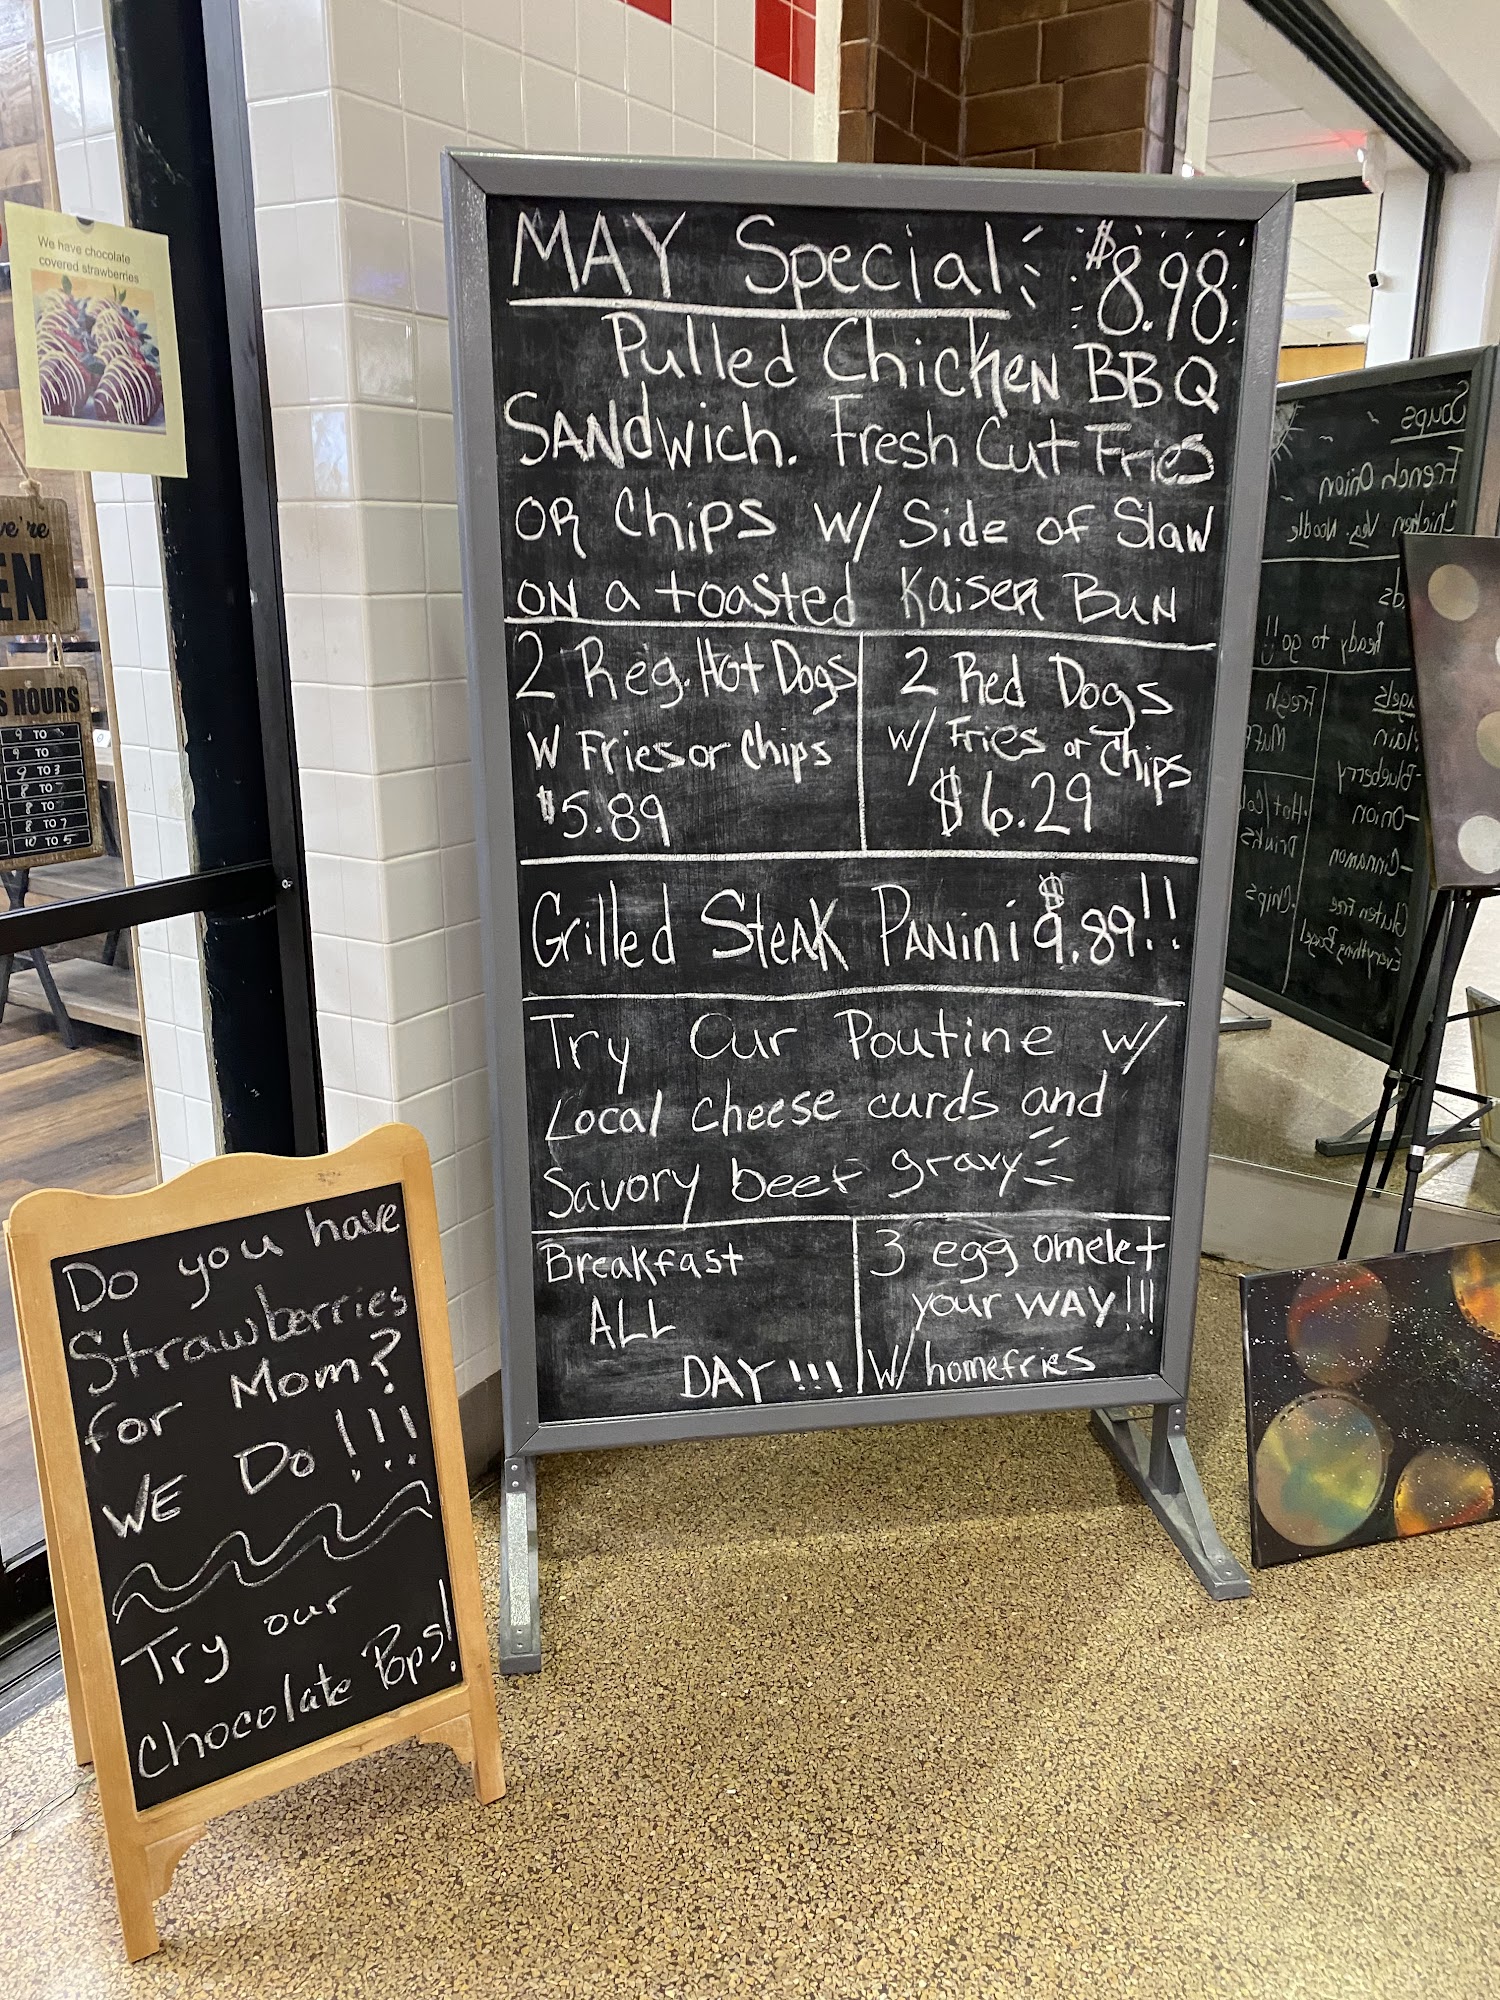 We have chocolate
covered strawberries
we're
EN
S HOURS
9 TO
9 TO
9 TO 3
8 TO
8 TO
8 TO 7
10 TO 5
MAY Special $8.98
Pulled Chicken BBQ
SANdwich. Fresh Cut Fries
OR Chips w/ Side of Slaw
ON a toasted Kaiser BuN
2 Reg. Hot Dogs
W Fries or Chips
$5.89
2 Red Dogs
w/ Fries or Chips
$6.29
Grilled SteAK PANini $9.89!!
Try Our Poutine w/
Local cheese curds and
Savory beef gravy
Breakfast
ALL
DAY!!!
3 egg omelet
your WAY!!!
W/ homefries
Do you have
Strawberries
for Mom?
WE Do!!!
Try our
Chocolate Pops!
Soups
French Onion
Chicken Veg. Noodle
Ready to go!!
Plain
-Blueberry
-Onion
-Cinnamon
Gluten Free
Everything Bagel
Fresh
Muff
·Hot/Col
Drinks
·Chips